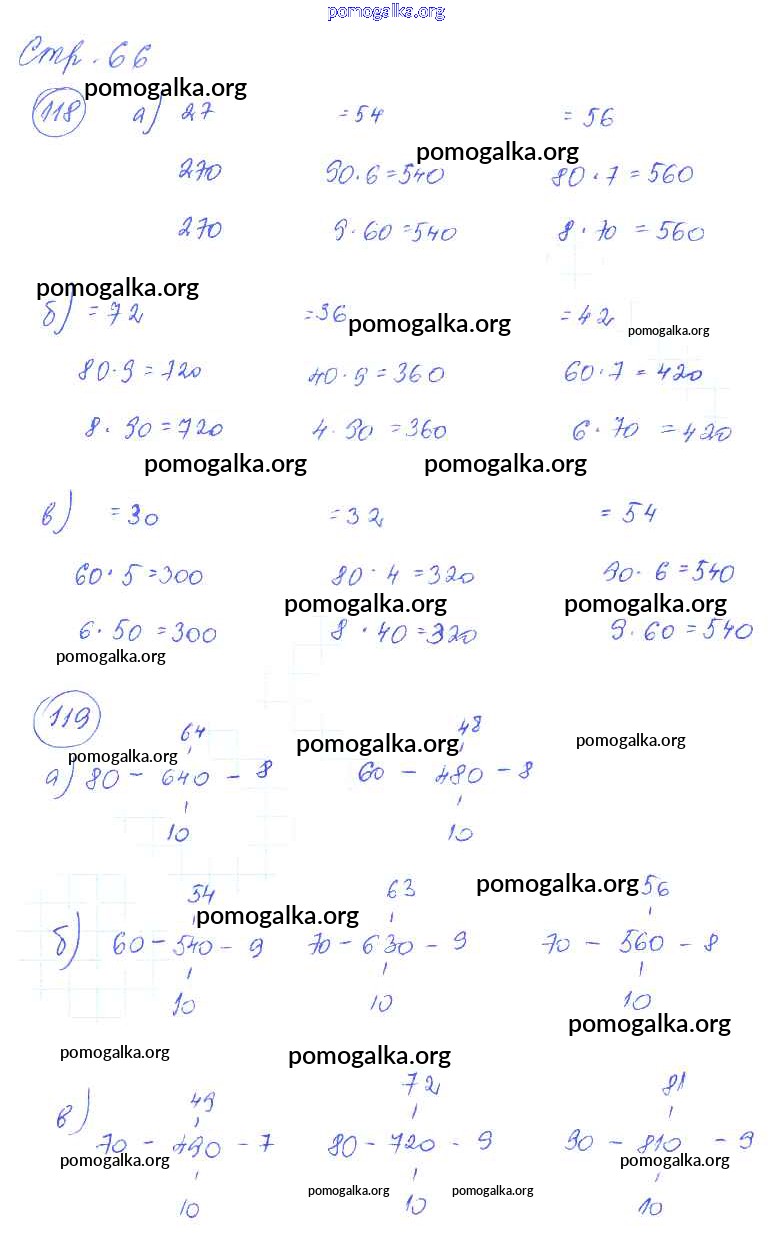 pomogalka.org
Стр. 66
pomogalka.org
118 а) 27 =54 = 56
pomogalka.org
270 90·6=540 80·7=560
270 9·60=540 8·70=560
pomogalka.org
б) =72 =36 =42
pomogalka.org pomogalka.org
80·9=720 40·9=360 60·7=420
8·90=720 4·90=360 6·70=420
pomogalka.org pomogalka.org
в) =30 =32 =54
60·5=300 80·4=320 90·6=540
pomogalka.org pomogalka.org
6·50=300 8·40=320 9·60=540
pomogalka.org
119
64 48
pomogalka.org pomogalka.org pomogalka.org
а) 80 - 640 - 8 60 - 480 - 8
10 10
54 63 56
pomogalka.org
pomogalka.org
б) 60 - 540 - 9 70 - 630 - 9 70 - 560 - 8
10 10 10
pomogalka.org
pomogalka.org pomogalka.org
49 72 81
в) 70 - 490 - 7 80 - 720 - 9 90 - 810 - 9
pomogalka.org pomogalka.org
pomogalka.org pomogalka.org
10 10 10